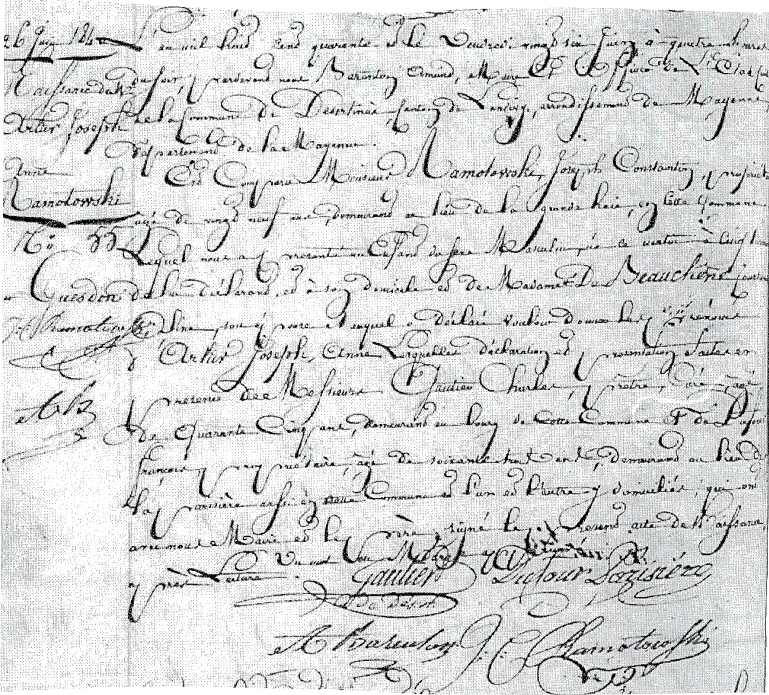 26 Juin 184
L'an mil huit cent quarante et le Vendredi vingt six Juin à quatre heures
Naissance du
du soir, pardevant nous Barenton Edmond, Maire et officier de L'Etat
Artur Joseph
de la Commune de Desertines, Canton de Landivy, arrondissement de Mayenne,
Département de la Mayenne.
Anne
Est Comparu Monsieur Ramotowski, Joseph Constantin,
Ramotowski
agé de vingt neuf ans, demeurant au lieu de la grande haie, en cette Commune
No 55
Lequel nous a présenté un Enfant du sexe Masculin, né ce
Guesdon
de lui déclarant, et à son domicile et de Madame De Beauchêne
J. C. Ramotowski
son épouse et auquel a déclaré vouloir donner les prénoms
d'Artur, Joseph, Anne Lesquelles déclaration et présentation faites en
AB
présence de Messieurs Gautier Charles, prêtre, agé
de quarante Cinq ans, demeurant au bourg de Cette Commune et de
françois propriétaire, agé de soixante ans, demeurant au lieu de
la aussi en cette Commune et l'un et l'autre y domiciliés, qui ont
avec nous Maire et le père signé le présent acte de Naissance
après Lecture.
Gautier Dufour Lozisière
A Barenton J. C. Ramotowski